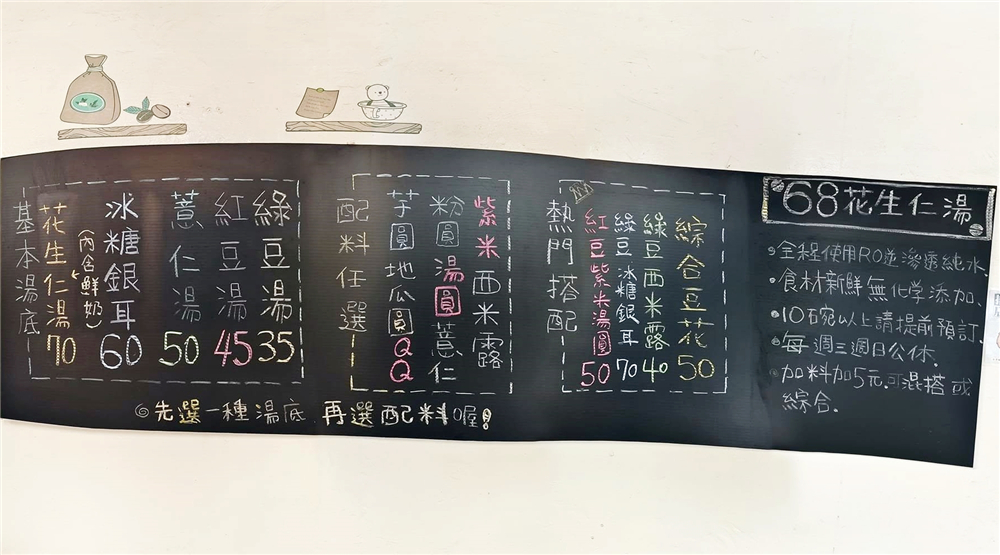 基本湯底
花生仁湯70
(內含鮮奶)
冰糖銀耳60
薏仁湯50
紅豆湯45
綠豆湯35
配料任選
芋圓地瓜圓QQ
粉圓湯圓薏仁
紫米西米露
熱門搭配
紅豆紫米湯圓50
綠豆冰糖銀耳70
綠豆西米露40
綜合豆花50
◎先選一種湯底 再選配料喔!
68花生仁湯
全程使用RO逆滲透純水.
食材新鮮無化學添加.
10碗以上請提前預訂.
每週三週日公休.
加料加5元,可混搭或
綜合.